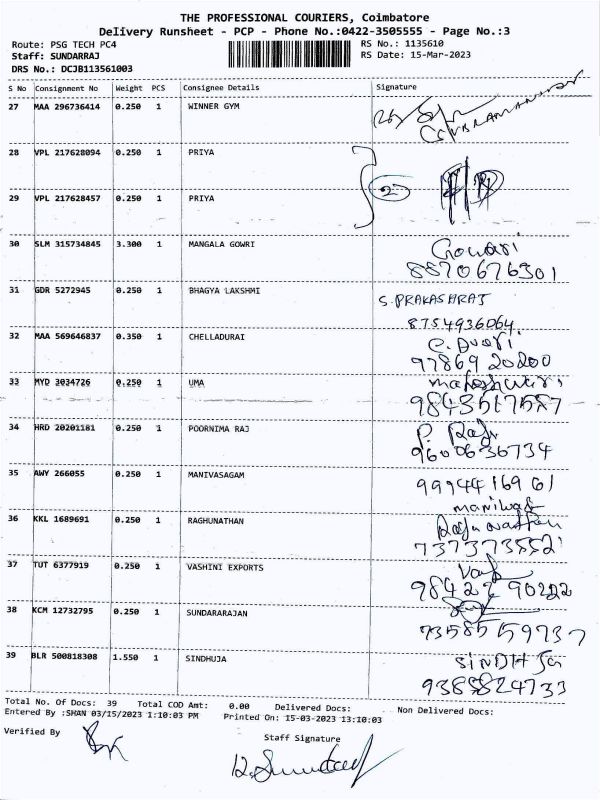 THE PROFESSIONAL COURIERS, Coimbatore
Delivery Runsheet - PCP - Phone No.:0422-3505555 - Page No.:3
Route: PSG TECH PC4 RS No.: 1135610
Staff: SUNDARRAJ RS Date: 15-Mar-2023
DRS No.: DCJB113561003
S No Consignment No Weight PCS Consignee Details Signature
27 MAA 296736414 0.250 1 WINNER GYM
28 VPL 217628094 0.250 1 PRIYA
2
29 VPL 217628457 0.250 1 PRIYA
30 SLM 315734845 3.300 1 MANGALA GOWRI Gowari
8870676301
31 GDR 5272945 0.250 1 BHAGYA LAKSHMI S.PRAKASHRAJ
8754936064
32 MAA 569646837 0.350 1 CHELLADURAI
97869 20200
33 MYD 3034726 0.250 1 UMA maheshwari
9843517587
34 HRD 20201181 0.250 1 POORNIMA RAJ P. Raj
9600636734
35 AWY 266055 0.250 1 MANIVASAGAM 99944 169 61
36 KKL 1689691 0.250 1 RAGHUNATHAN
37 TUT 6377919 0.250 1 VASHINI EXPORTS
98422 90222
38 KCM 12732795 0.250 1 SUNDARARAJAN
73585 59737
39 BLR 500818308 1.550 1 SINDHUJA
9385824733
Total No. Of Docs: 39 Total COD Amt: 0.00 Delivered Docs: Non Delivered Docs:
Entered By :SHAN 03/15/2023 1:10:03 PM Printed On: 15-03-2023 13:10:03
Verified By Staff Signature